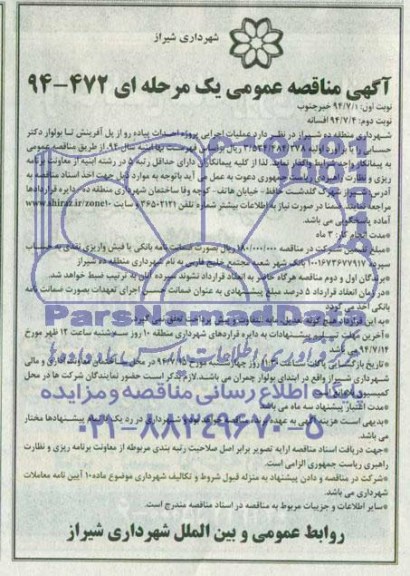 شهرداری شیراز
آگهی مناقصه عمومی یک مرحله ای ۴۷۲-۹۴
نوبت اول: ۹۴/۷/۱ خبرجنوب
نوبت دوم: ۹۴/۷/۲ افسانه
شهرداری منطقه ده شیراز در نظر دارد عملیات اجرایی پروژه احداث پیاده رو از پل آفرینش تا بولوار دکتر
حسابی را با برآورد اولیه ریال براساس فهرست بها ابنیه سال ۹۴ از طریق مناقصه عمومی
به پیمانکار واجد شرایط واگذار نماید. لذا از کلیه پیمانکاران دارای حداقل رتبه ۵ در رشته ابنیه از معاونت برنامه
ریزی و نظارت راهبردی ریاست جمهوری دعوت به عمل می آید باتوجه به موارد ذیل جهت اخذ اسناد مناقصه به
آدرس شیراز شهرک گلدشت حافظ - خیابان هاتف - کوچه وفا ساختمان شهرداری منطقه ده دایره قراردادها
مراجعه نمایند. ضمنا در صورت نیاز به اطلاعات بیشتر شماره تلفن ۳۶۵۰۲۱۲۱ و سایت www.shiraz.ir/zone10
آماده پاسخگویی می باشد.
*مدت انجام کار: ۳ ماه
*مبلغ تضمین شرکت در مناقصه ۱۸۰/۰۰۰/۰۰۰ ریال بصورت ضمانت نامه بانکی یا فیش واریزی نقدی به حساب
۱۰۰۱۶۷۳۶۷۷۹۱۷ بانک شهر شعبه مجتمع خلیج فارس به نام شهرداری منطقه ده شیراز
*برندگان اول و دوم مناقصه هرگاه حاضر به انعقاد قرارداد نشوند سپرده آنان به ترتیب ضبط خواهد شد.
*در زمان انعقاد قرارداد ۵ درصد مبلغ پیشنهادی به عنوان ضمانت حسن اجرای تعهدات بصورت ضمانت نامه
بانکی اخذ می گردد
*به این قرارداد هیچ گونه
*آخرین مهلت تسلیم پیشنهادات به دایره قراردهای شهرداری منطقه ۱۰ روز سه شنبه ساعت ۱۲ ظهر مورخ
۹۴/۷/۱۴ می باشد
*تاریخ بازگشایی پاکات ساعت روز چهارشنبه مورخ ۹۴/۷/۱۵ در محل معاونت برنامه ریزی و اداری و مالی
شهرداری شیراز واقع در ابتدای بولوار چمران می باشد. لازم به ذکر است حضور نمایندگان شرکت ها در محل
کمیسیون
*مدت اعتبار پیشنهاد سه ماه می باشد
*بدیهی است هزینه آگهی به عهده برنده مناقصه خواهد بود و شهرداری در رد یک یا کلیه پیشنهادها مختار
می باشد.
*جهت دریافت اسناد مناقصه ارایه تصویر برابر اصل صلاحیت رتبه بندی مربوطه از معاونت برنامه ریزی و نظارت
راهبری ریاست جمهوری الزامی است.
*شرکت در مناقصه و دادن پیشنهاد به منزله قبول شروط و تکالیف شهرداری موضوع ماده ۱۰ آیین نامه معاملات
شهرداری می باشد.
*سایر اطلاعات و جزییات مربوط به مناقصه در اسناد مناقصه مندرج است.
روابط عمومی و بین الملل شهرداری شیراز
ParsNamadData
پایگاه اطلاع رسانی مناقصه و مزایده
۰۲۱-۸۸۳۴۹۶۷۰-۵